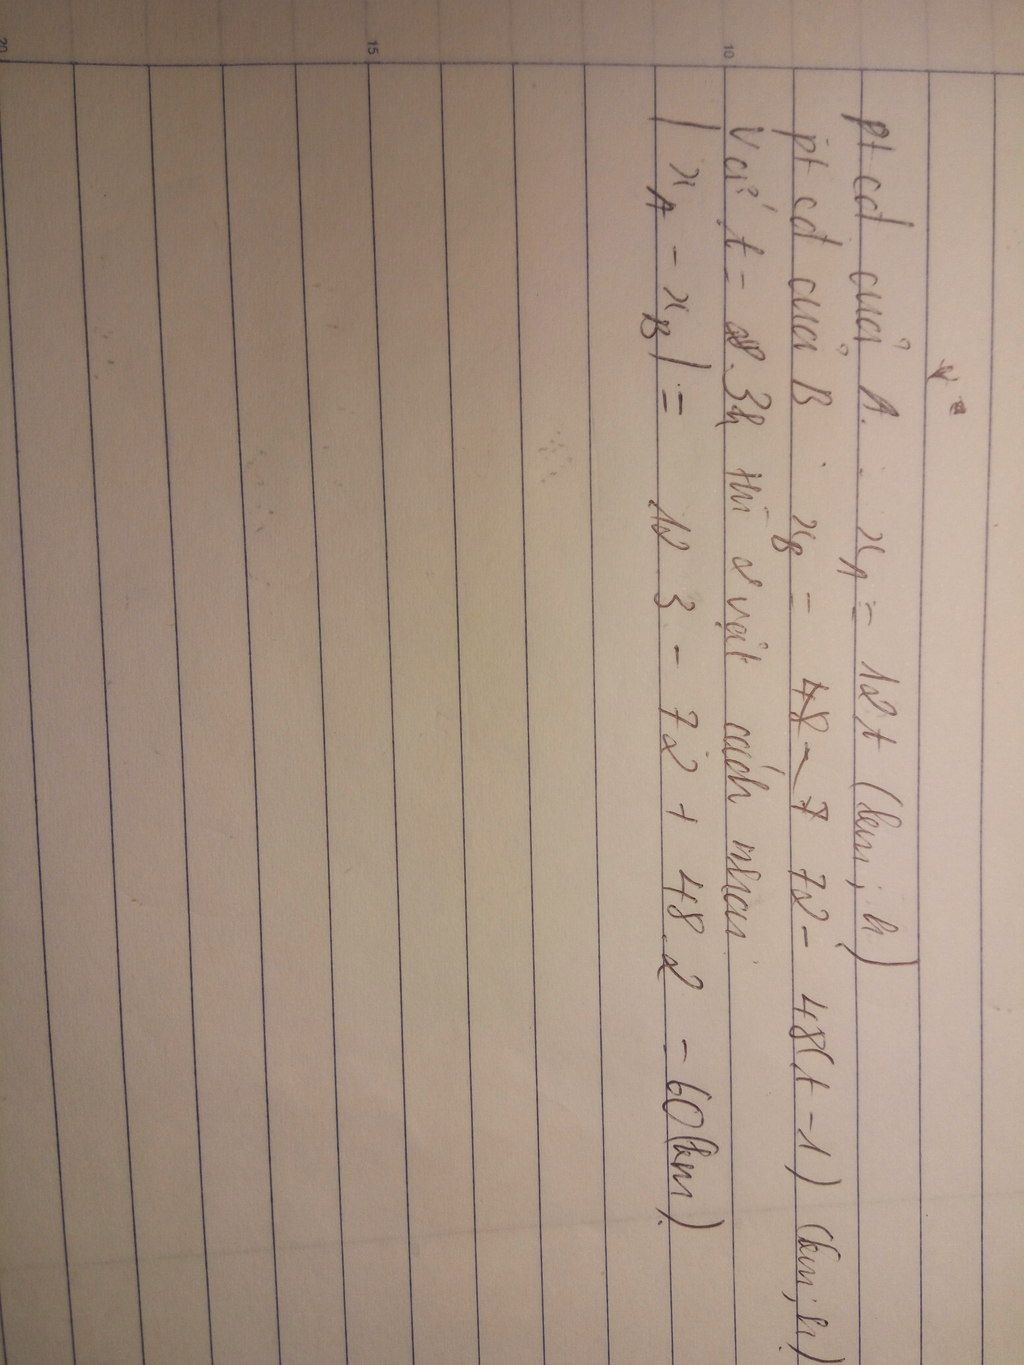 pt cđ của A: xA = 12t (km; h)
pt cđ của B: xB = 72 - 48(t - 1) (km; h)
Với t = 3h thì 2 vật cách nhau
| xA - xB | = 12 3 - 72 + 48.2 = 60 (km).
10
15
20